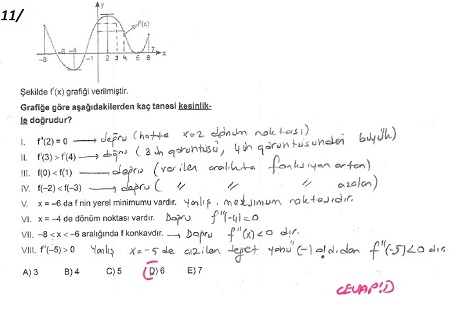 11/
y
f'(x)
-8 -6 -4 -1 2 3 4 6 8 7 x
Şekilde f'(x) grafiği verilmiştir.
Grafiğe göre aşağıdakilerden kaç tanesi kesinlik-
le doğrudur?
I. f''(2) = 0 → doğru (hatta x=2 dönüm noktası)
II. f'(3) > f'(4) → doğru (3 ün görüntüsü, 4 ün görüntüsünden büyük)
III. f(0) < f(1) → doğru (verilen aralıkta fonksiyon artan)
IV. f(-2) < f(-3) → doğru ( " " " azalan)
V. x = -6 da f nin yerel minimumu vardır. Yanlış, maksimum noktasıdır.
VI. x = -4 de dönüm noktası vardır. Doğru f''(-4)=0
VII. -8 < x < -6 aralığında f konkavdır. → Doğru f''(x) < 0 dır.
VIII. f''(-5) > 0 Yanlış x=-5 de çizilen teğet yönü (-) olduğundan f''(-5) < 0 dır.
A) 3 B) 4 C) 5 D) 6 E) 7
CEVAP:D